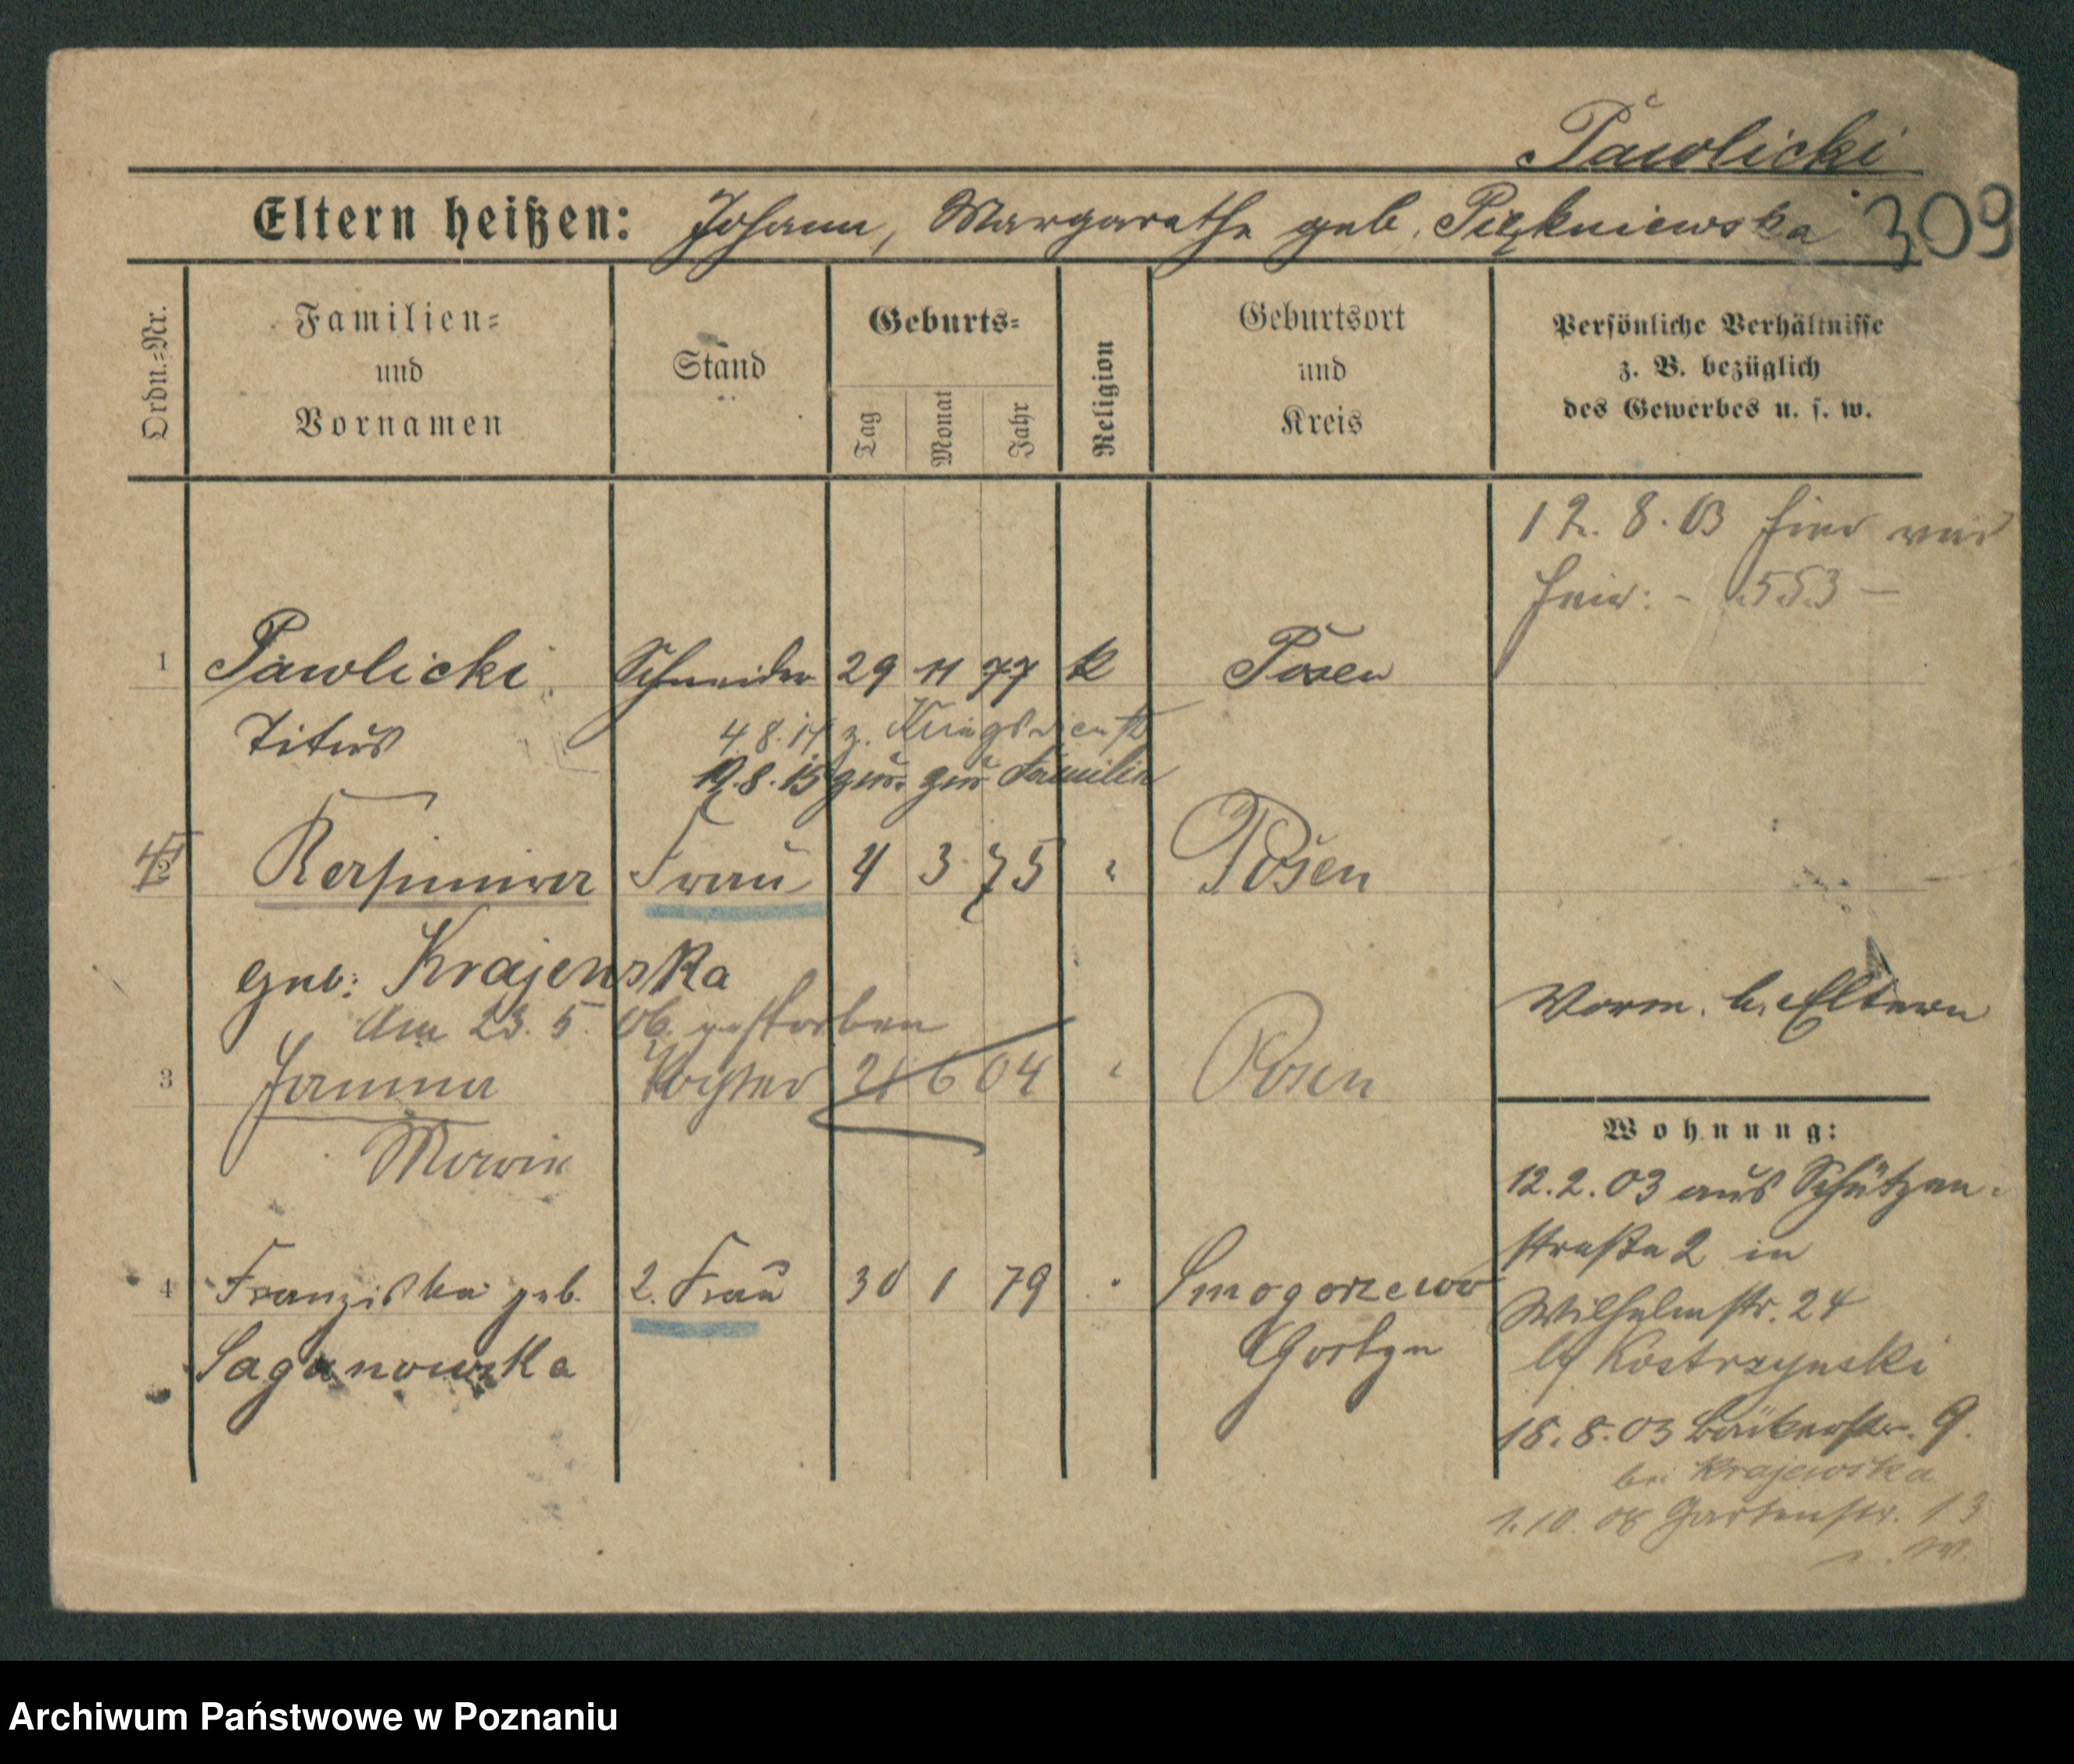 Pawlicki
Eltern heißen: Johann, Margarethe geb. Piękniewska 309
Ordn.-Nr.
Familien-
und
Vornamen
Stand
Geburts-
Tag
Monat
Jahr
Religion
Geburtsort
und
Kreis
Persönliche Verhältnisse
z. B. bezüglich
des Gewerbes u. s. w.
12. 8. 03 hier
553 —
1 Pawlicki Schneider 29 11 77 k Posen
Titus
4. 8. 14 z. Kriegsdienst
19. 8. 15 zur Familie
2 Frau 4 3 75 " Posen
geb: Krajewska
Am 23. 5. 06. gestorben
Vorm. b. Eltern
3 Janina Tochter 21 6 04 " Posen
Maria
4 Franziska geb. 2. Frau 30 1 79 " Smogorzewo
Saganowska Gostyn
Wohnung:
12. 2. 03 aus Schützen-
straße 2 in
Wilhelmstr. 24
bei Kostrzynski
18. 8. 03 Bäckerstr. 9.
bei Krajewska
1. 10. 08 Gartenstr. 13
Archiwum Państwowe w Poznaniu